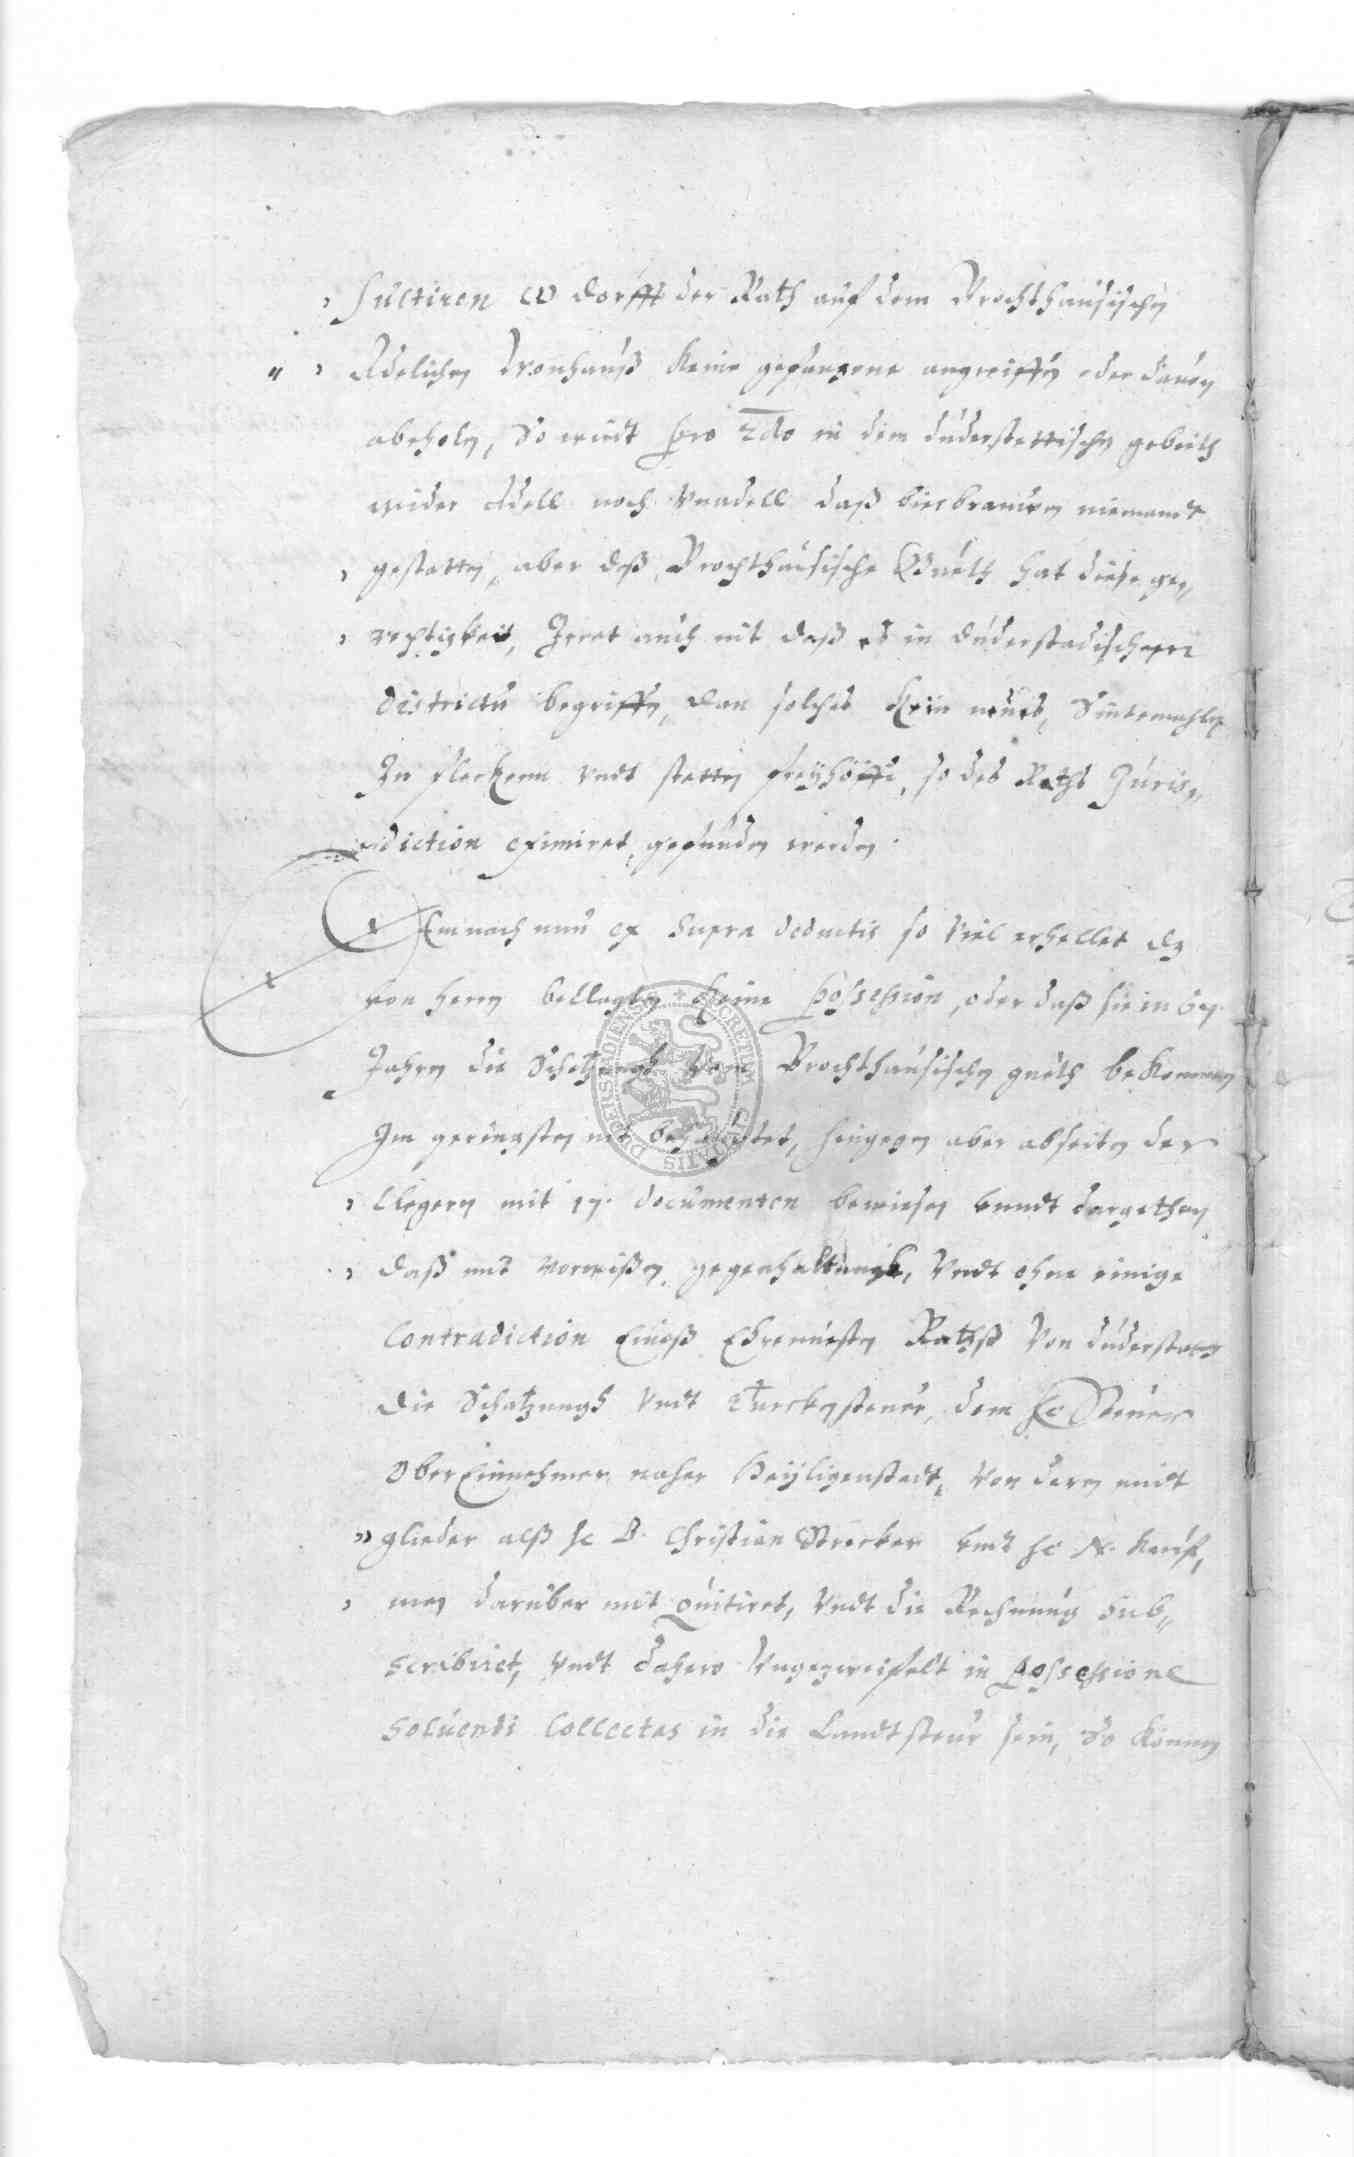 sultiren dorfft der Rath auf dem Brochthausischen
Adelichen Wonhauß keine gefangene angreiffen oder davon
abholen, So wirdt pro 2do in dem duderstettischen gebieth
wider Adell noch Unadell daß bierbrauwen niemandt
gestatten, aber daß Brochthausische Gueth hat diese ge„
rechtigkeit, Irret auch nit daß es in duderstadischem
districtu begriffen, dan solches kein neues, Sintemahlen
In fleckenn undt stetten freyhöffe, so des Raths Juris„
diction eximiret, gefunden werden.
Demnach nun ex supra deductis so viel erhellet dz
von herrn beklagten keine possession, oder daß sie in
Jahren die Schatzungh vom Brochthausischen gueth bekommen
Im geringsten nit, hingegen aber abseiten der
Clegern mit 17. documenten bewiesen unndt dargethan
daß mit vorwißen, gegenhaltungk, Undt ohne einige
Contradiction Eineß Ehrenvesten Rathß Von duderstatt
die Schatzungh Undt Turckensteuer, dem Steuer
Ober Einnehmer naher Heyligenstadt, Von deren midt
glieder alß H. D. Christian Strecker undt H. N. Kauf,
man daruber mit quitiret, Undt die Rechnung sub„
scribiret, Undt dahero Ungezweifelt in possessione
soluendi Collectas in die Landtsteur sein, So können
DUDERSTADIENSIS SECRETUM CIVITATIS